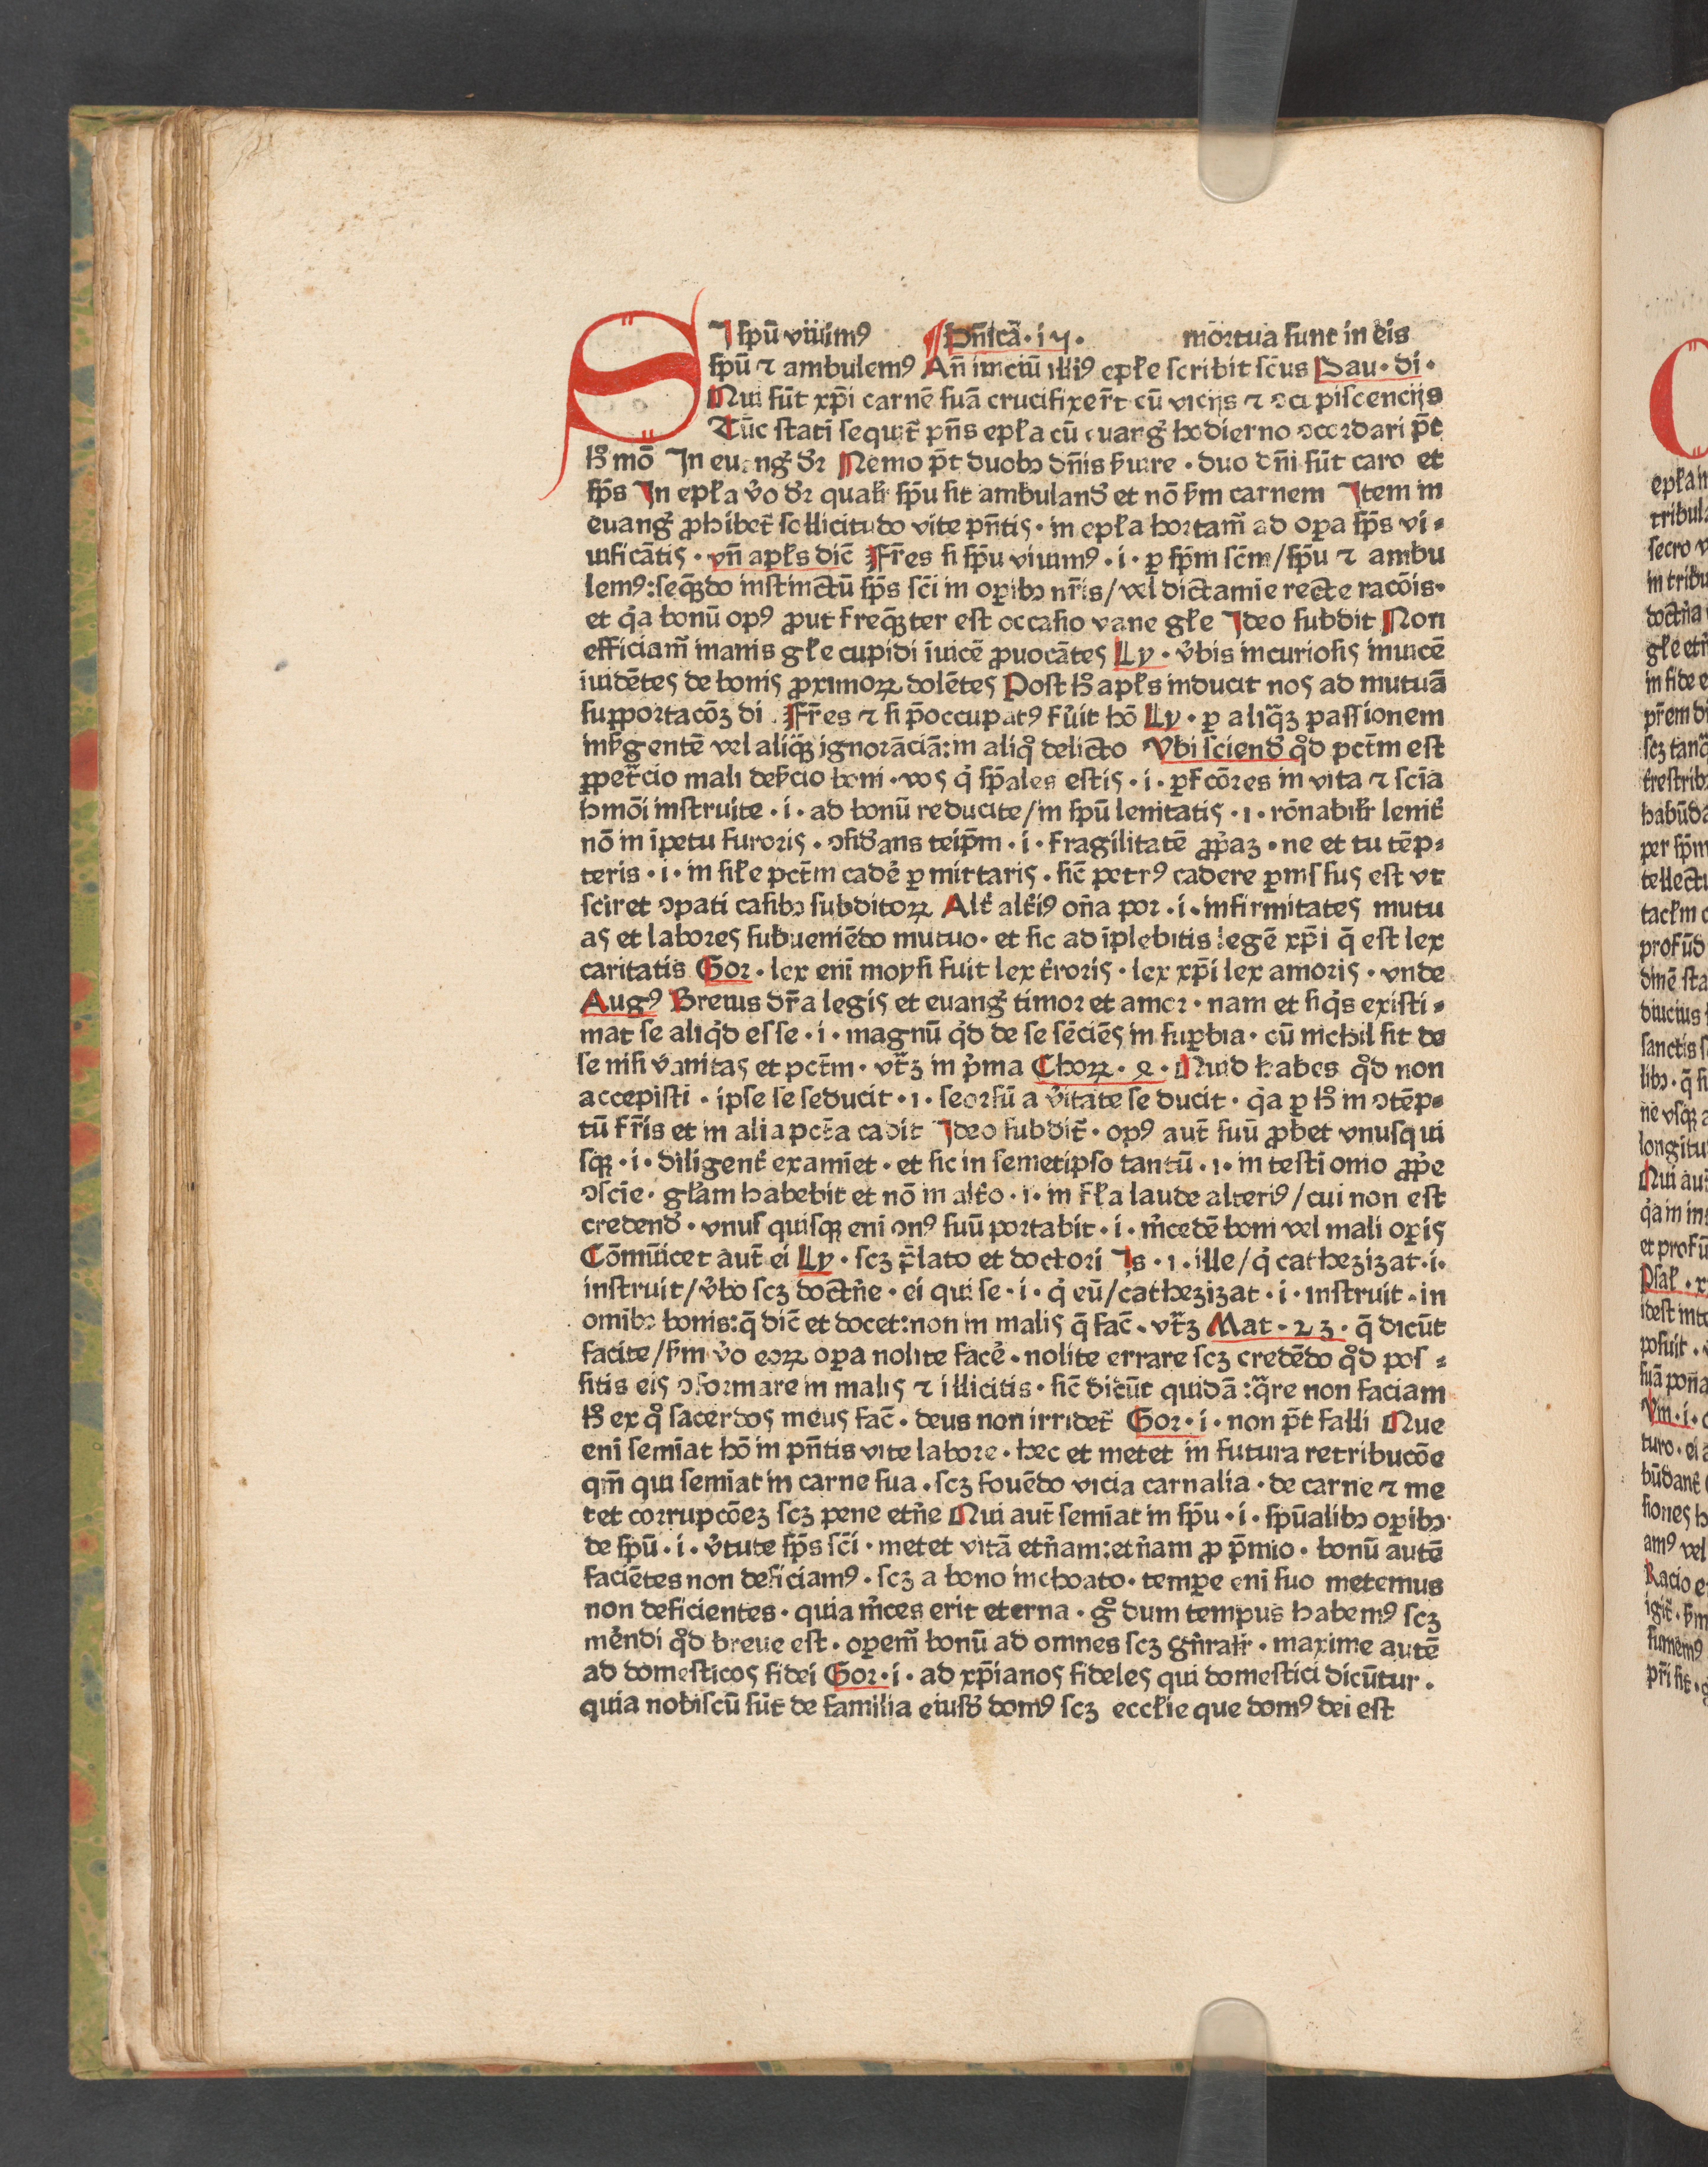 SI spū viuimꝰ ¶ Dn̄icā · i4 · mortua sunt in eis
spū ⁊ ambulemꝰ An̄ iniciū illiꝰ epl̄e scribit sc̄us Pau · di ·
Qui sūt xp̄i carnē suā crucifixer̄t cū vicijs ⁊ ꝯcupiscencijs
Tūc stati sequit̄ pn̄s epl̄a cū euang̓ hodierno ꝯcordari pt̄
h̓ mō In euang̓ dr̄ Nemo pt̄ duobꝫ dn̄is ẜuire · duo dn̄i sūt caro et
sp̄s In epl̄a v̓o dr̄ qualr̄ sp̄u sit ambuland̓ et nō ẜm carnem Item in
euang̓ ꝓhibet̄ sollicitudo vite pn̄tis · in epl̄a hortam̄ ad oꝑa sp̄s vi-
uificātis · vn̄ apl̄s dic̄ Fr̄es si sp̄u viuimꝰ · i · ꝑ sp̄m sc̄m/sp̄u ⁊ ambu
lemꝰ:seq̄ꝫdo instinctū sp̄s sc̄i in oꝑibꝫ nr̄is/vel dictamīe recte racōis·
et q̓a bonū opꝰ ꝓut freq̄ꝫter est occasio vane gl̄e Ideo subdit Non
efficiam̄ inanis gl̄e cupidi īuicē ꝓuocātes Ly · v̓bis incuriosis inuicē
īuidētes de bonis ꝓximoꝝ dolētes Post h̓ apl̄s inducit nos ad mutuā
supportacōꝫ di · Fr̄es ⁊ si p̄occupatꝰ fu̓it hō Ly · ꝑ aliq̄ꝫ passionem
inẜgentē vel aliq̄ꝫ ignorāciā:in aliqͦ delicto Vbi sciend̓ qͦd pctm̄ est
ꝑpetr̄cio mali deẜcio boni · vos q̓ sp̄ales estis · i · ꝑfcōres in vita ⁊ scīa
hmōi instruite · i · ad bonū reducite/in spū lenitatis · i · rōnabilr̄ lenit̓
nō in īpetu furoris · ꝯsid̓ans teip̄m · i · fragilitatē ꝓp̓aꝫ · ne et tu tēp-
teris · i · in sil̄e pctm̄ cade̓ ꝑmittaris · sic̄ petrꝰ cadere ꝑmissus est vt
sciret ꝯpati casibꝫ subditoꝝ Alt̓ alt̓iꝰ on̄a por · i · infirmitates mutu
as et labores subueniēdo mutuo · et sic adīplebitis legē xp̄i q̄ est lex
caritatis Gor · lex enī moysi fuit lex t̓roris · lex xp̄i lex amoris · vnde
Augꝰ Breuis dr̄a legis et euang̓ timor et amor · nam et siq̓s existi-
mat se aliqͦd esse · i · magnū qͦd de se sēciēs in suꝑbia · cū nichil sit de
se nisi vanitas et pctm̄ · vtr̄ꝫ in p̓ma Choꝝ · 4 · Quid habes qͦd non
accepisti · ipse se seducit · i · seorsū a v̓itate se ducit · q̓a ꝑ h̓ in ꝯtēp-
tū fr̄is et in alia pctā cadit Ideo subdit̄ · opꝰ aut̄ suū ꝓbet vnusqui
sqꝫ · i · diligent̓ examīet · et sic in semetipso tantū · i · in testimonio ꝓp̓e
ꝯscīe · gl̄am habebit et nō in alt̓o · i · in fl̄a laude alteriꝰ/cui non est
credend̓ · vnusquisqꝫ eni onꝰ suū portabit · i · m̓cedē boni vel mali oꝑis
Cōmūicet aut̄ ei Ly · scꝫ p̄lato et doctori Is · i · ille/q̓ cathezizat · i ·
instruit/v̓bo scꝫ doctn̄e · ei qui se · i · q̓ eū/cathezizat · i · instruit · in
omibꝫ bonis:q̄ dic̄ et docet:non in malis q̄ fac̄ · vtr̄ꝫ Mat · 23 · q̄ dicūt
facite/ẜm v̓o eoꝝ oꝑa nolite face̓ · nolite errare scꝫ credēdo qͦd pos-
sitis eis ꝯformare in malis ⁊ illicitis · sic̄ dicūt quidā:q̄re non faciam
h̓ ex qͦ sacerdos meus fac̄ · deus non irridet̄ Gor · i · non pt̄ falli Que
enī semīat hō in pn̄tis vite labore · hec et metet in futura retribucōe
qm̄ qui semīat in carne sua · scꝫ fouēdo vicia carnalia · de carne ⁊ me
tet corrupcōeꝫ scꝫ pene etn̄e Qui aut̄ semīat in sp̄u · i · sp̄ualibꝫ oꝑibꝫ·
de spū · i · v̓tute sp̄s sc̄i · metet vitā etn̄am:etn̄am ꝓ p̄mio · bonū autē
faciētes non deficiamꝰ · scꝫ a bono inchoato · temꝑe eni suo metemus
non deficientes · quia m̓ces erit eterna · gͦ dum tempus habemꝰ scꝫ
me̓ndi qͦd breue est · oꝑem̄ bonū ad omnes scꝫ gn̄ralr̄ · maxime autē
ad domesticos fidei Gor · i · ad xp̄ianos fideles qui domestici dicūtur ·
quia nobiscū sūt de familia eiusd̓ domꝰ scꝫ eccl̄ie que domꝰ dei est